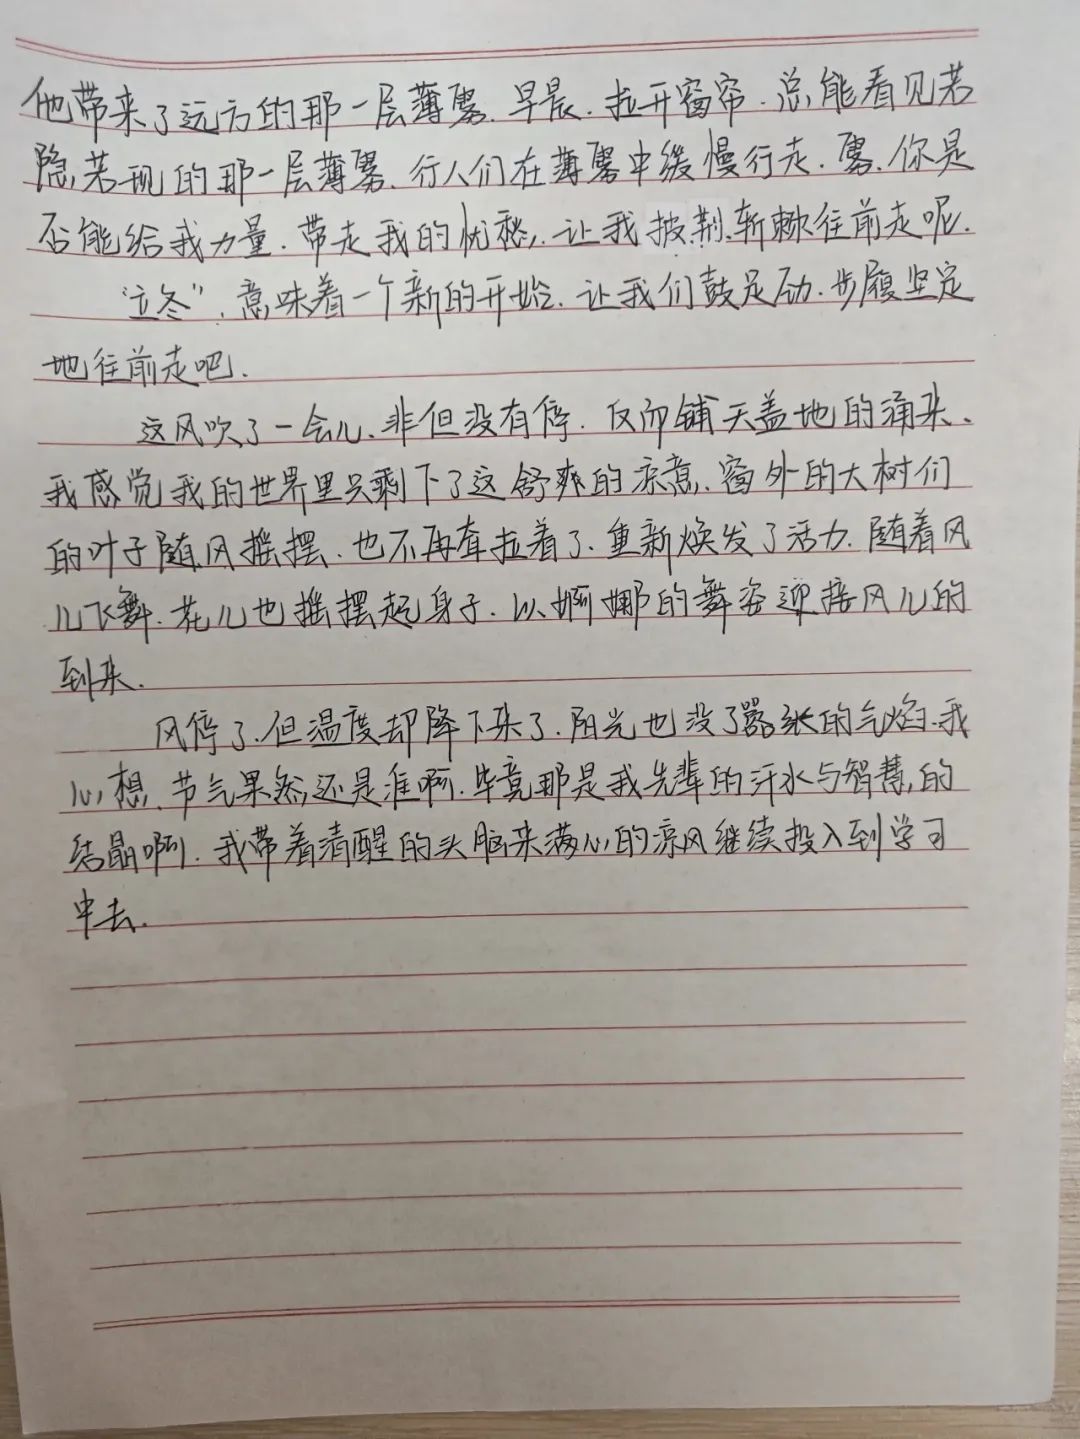 他带来了远方的那一层薄雾.早晨.拉开窗帘.总能看见若
隐若现的那一层薄雾、行人们在薄雾中缓慢行走.雾.你是
否能给我力量.带走我的忧愁,让我披荆斩棘往前走呢.
“立冬”,意味着一个新的开始.让我们鼓足劲.步履坚定
地往前走吧.
这风吹了一会儿、非但没有停.反而铺天盖地的涌来、
我感觉我的世界里只剩下了这舒爽的凉意.窗外的大树们
的叶子随风摇摆.也不再耷拉着了.重新焕发了活力.随着风
儿飞舞.花儿也摇摆起身子.以婀娜的舞姿迎接风儿的
到来.
风停了.但温度却降下来了.阳光也没了嚣张的气焰.我
心想,节气果然还是准啊.毕竟那是我先辈的汗水与智慧的
结晶啊.我带着清醒的头脑来满心的凉风继续投入到学习
中去.